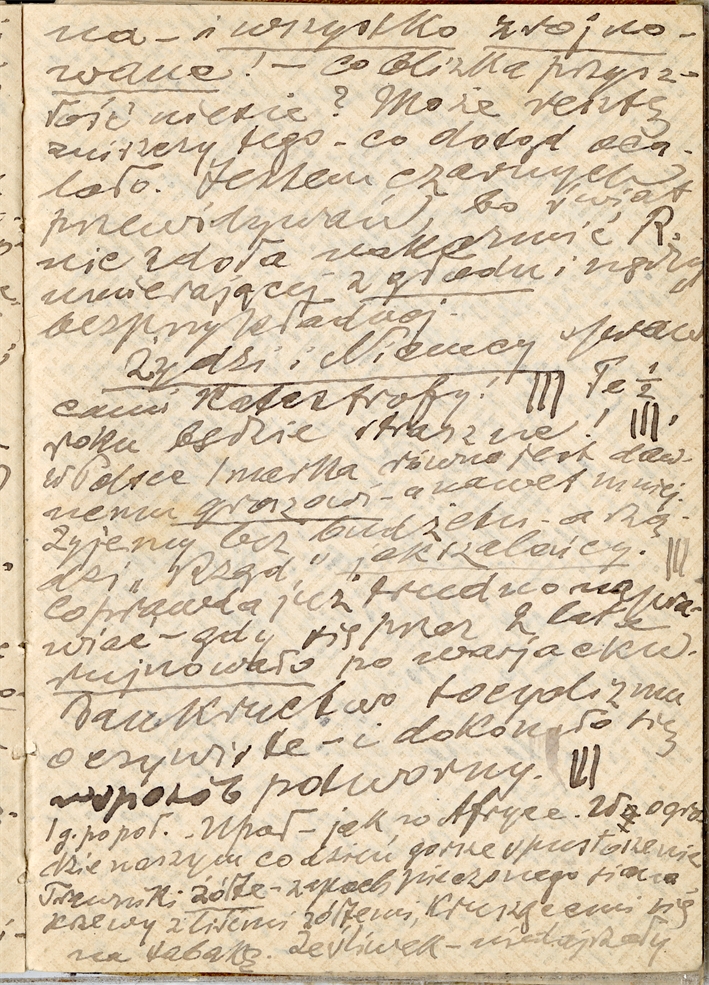 na – i wszystko zrujno-
wane! – co blizka przysz-
łość niesie? Może resztę
zniszczy tego – co dotąd oca-
lało. Jestem czarnych
przewidywań, bo świat
nie zdoła nakarmić R.
umierającej z głodu i nędzy
bezprzykładnej.
Żydzi i Niemcy spraw-
cami katastrofy! Te ½
roku będzie straszne!
w Polsce 1 marka równa jest daw-
nemu groszowi – a nawet mniej.
Żyjemy bez budżetu – a rzą-
dzi "Rząd" jak szaleńcy.
Coprawda już trudno napra-
wiać – gdy się przez 2 lata
rujnowało po warjacku.
Bankructwo socyalizmu
oczywiste – i dokonało się
w sposób potworny.
1 g. popoł. Upał – jak w Afryce. W ogro-
dzie naszym co dzień gorsze spustoszenie
Trawniki żółte – zapach pieczonego siana
krzewy z liśćmi żółtemi, kruszącemi się
na tabakę. Ześliwek – niedojrzały